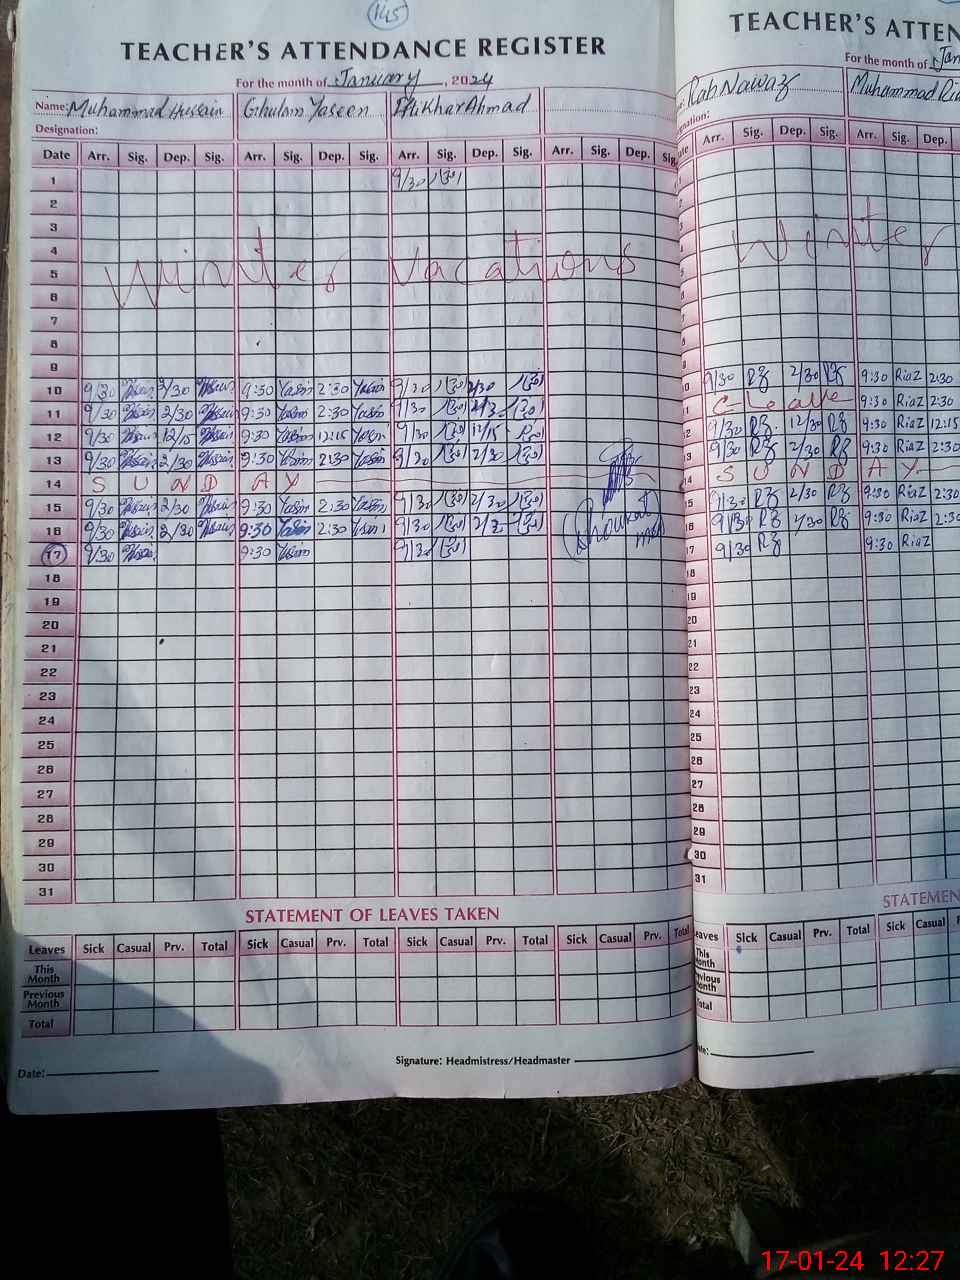 145
TEACHER'S ATTENDANCE REGISTER
For the month of January, 2024
Name: Muhammad Hussain Ghulam Yaseen Iftikhar Ahmad
Designation:
Date Arr. Sig. Dep. Sig. Arr. Sig. Dep. Sig. Arr. Sig. Dep. Sig. Arr. Sig. Dep. Sig.
1 9/30
2
3
4
5 Winter Vacations
6
7
8
9
10 9/30 2/30 9:30 Yasin 2:30 Yasin 9/30 2/30
11 9/30 2/30 9:30 Yasin 2:30 Yasin 9/30 2/30
12 9/30 12/15 9:30 Yasin 12:15 Yasin 9/30 12/15
13 9/30 2/30 9:30 Yasin 2:30 Yasin 9/30 2/30
14 S U N D A Y
15 9/30 2/30 9:30 Yasin 2:30 Yasin 9/30 2/30
16 9/30 2/30 9:30 Yasin 2:30 Yasin 9/30 2/30
17 9/30 9:30 Yasin 9/30
18
19
20
21
22
23
24
25
26
27
28
29
30
31
STATEMENT OF LEAVES TAKEN
Leaves Sick Casual Prv. Total Sick Casual Prv. Total Sick Casual Prv. Total Sick Casual Prv. Total
This Month
Previous Month
Total
Signature: Headmistress/Headmaster
Date:
TEACHER'S ATTEN
For the month of Jan
Rab Nawaz Muhammad Ria
gnation:
ate Arr. Sig. Dep. Sig. Arr. Sig. Dep.
Winter
0 9/30 RZ 2/30 RZ 9:30 Riaz 2:30
1 C Leave 9:30 Riaz 2:30
2 9/30 RZ 12/30 RZ 9:30 Riaz 12:15
3 9/30 RZ 2/30 RZ 9:30 Riaz 2:30
14 S U N D A Y
15 9/30 RZ 2/30 RZ 9:30 Riaz 2:30
16 9/30 RZ 2/30 RZ 9:30 Riaz 2:30
17 9/30 RZ 9:30 Riaz
18
19
20
21
22
23
24
25
26
27
28
29
30
31
STATEMEN
eaves Sick Casual Prv. Total Sick Casual
This Month
evious Month
otal
te:
17-01-24 12:27